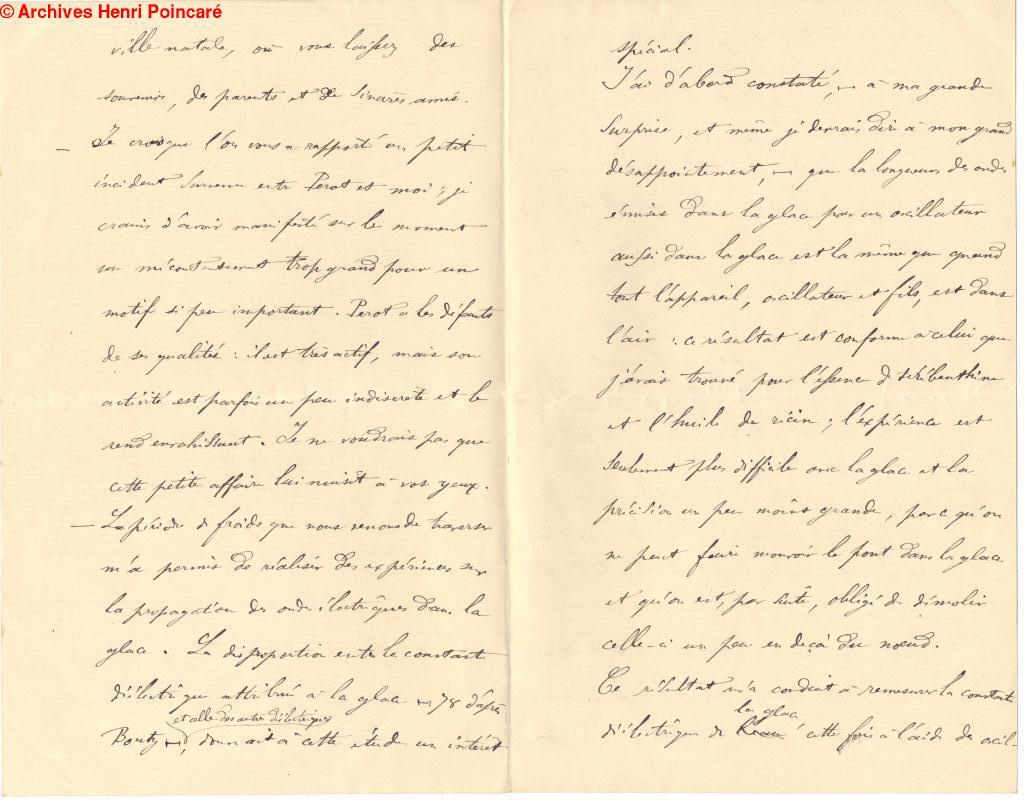 © Archives Henri Poincaré
ville natale, où vous laissez des
souvenirs, des parents et de sincères amis.
— Je crois que l'on vous a rapporté un petit
incident survenu entre Perot et moi ; je
crains d'avoir manifesté sur le moment
un mécontentement trop grand pour un
motif si peu important. Perot a les défauts
de ses qualités : il est très actif, mais son
activité est parfois un peu indiscrète et le
rend envahissant. Je ne voudrais pas que
cette petite affaire lui nuisît à vos yeux.
— La période de froids que nous venons de traverser
m'a permis de réaliser des expériences sur
la propagation des ondes électriques dans la
glace. La disproportion entre la constante
diélectrique attribué à la glace — 78 d'après
et celle des autres diélectriques
Bouty —, donnait à cette étude un intérêt
spécial.
J'ai d'abord constaté, — à ma grande
surprise, et même je devrais dire à mon grand
désappointement, — que la longueur des ondes
émises dans la glace par un oscillateur
aussi dans la glace est la même que quand
tout l'appareil, oscillateur et fils, est dans
l'air : ce résultat est conforme à celui que
j'avais trouvé pour l'essence de térébenthine
et l'huile de ricin ; l'expérience est
seulement plus difficile avec la glace et la
précision un peu moins grande, parce qu'on
ne peut faire mouvoir le pont dans la glace
et qu'on est, par suite, obligé de démolir
celle-ci un peu en deçà du nœud.
Ce résultat m'a conduit à remesurer la constante
la glace
diélectrique de l'eau cette fois à l'aide des oscil-